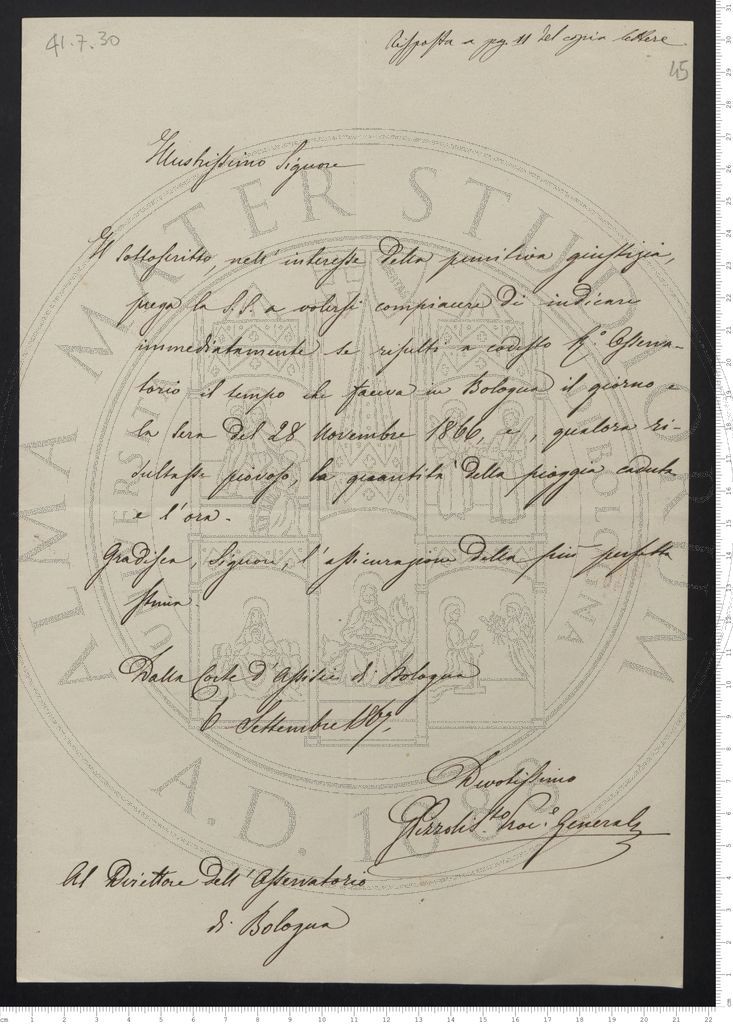 41.7.30
Risposta a pag. 11 del copia lettere
45
Illustrissimo Signore
Il sottoscritto, nell'interesse della punitiva giustizia,
prega la S.S. a volersi compiacere di indicare
immediatamente se risulti a codesto R.º Osserva-
torio il tempo che faceva in Bologna il giorno e
la sera del 28 Novembre 1866, e, qualora ri-
sultasse piovoso, la quantità della pioggia caduta
e l'ora.
Gradisca, Signore, l'assicurazione della più perfetta
stima.
Dalla Corte d'Assisie di Bologna
6 Settembre 1867.
Devotissimo
Sto Proc.e Generale
Al Direttore dell'Osservatorio
di Bologna
ALMA MATER STUDIORUM
UNIVERSITÀ
A.D. 1088